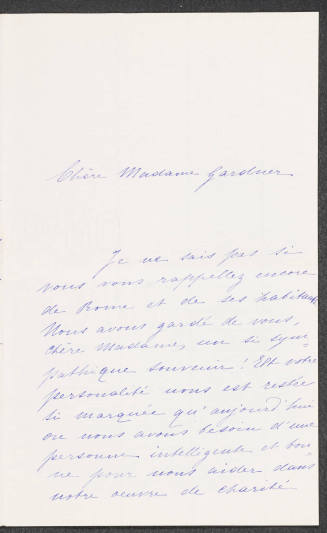 Chère Madame Gardner
Je ne sais pas si
vous vous rappellez encore
de Rome et de ses habitants
Nous avons gardé de vous,
chère Madame, un si sym=
pathique souvenir! Et votre
personalité nous est restée
si marquée qu'aujourd'hui
ou nous avons besoin d'une
personne intelligente et bon=
ne pour nous aider dans
notre oeuvre de charité